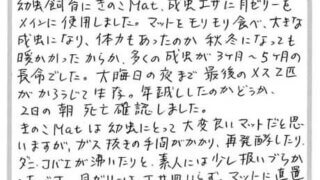 幼虫飼育にきのこMat、成虫エサに月ゼリーを
メインに使用しました。マットをモリモリ食べ、大きな
成虫になり、体力もあったのか 秋冬になっても
暖かかったからか、多くの成虫が3ヶ月〜5ヶ月の
長命でした。大晦日の夜まで最後のメス2匹
がかろうじて生存。年越ししたのかどうか、
2日の朝 死亡確認しました。
きのこMatは幼虫にとって 大変良いマットだと思
いますが、ガス抜きの手間がかかり、再発酵したり、
ダニ・コバエが沸いたりと、素人には少し扱いづらか
ったです。月ゼリーは エサ皿いらず、マットに直置